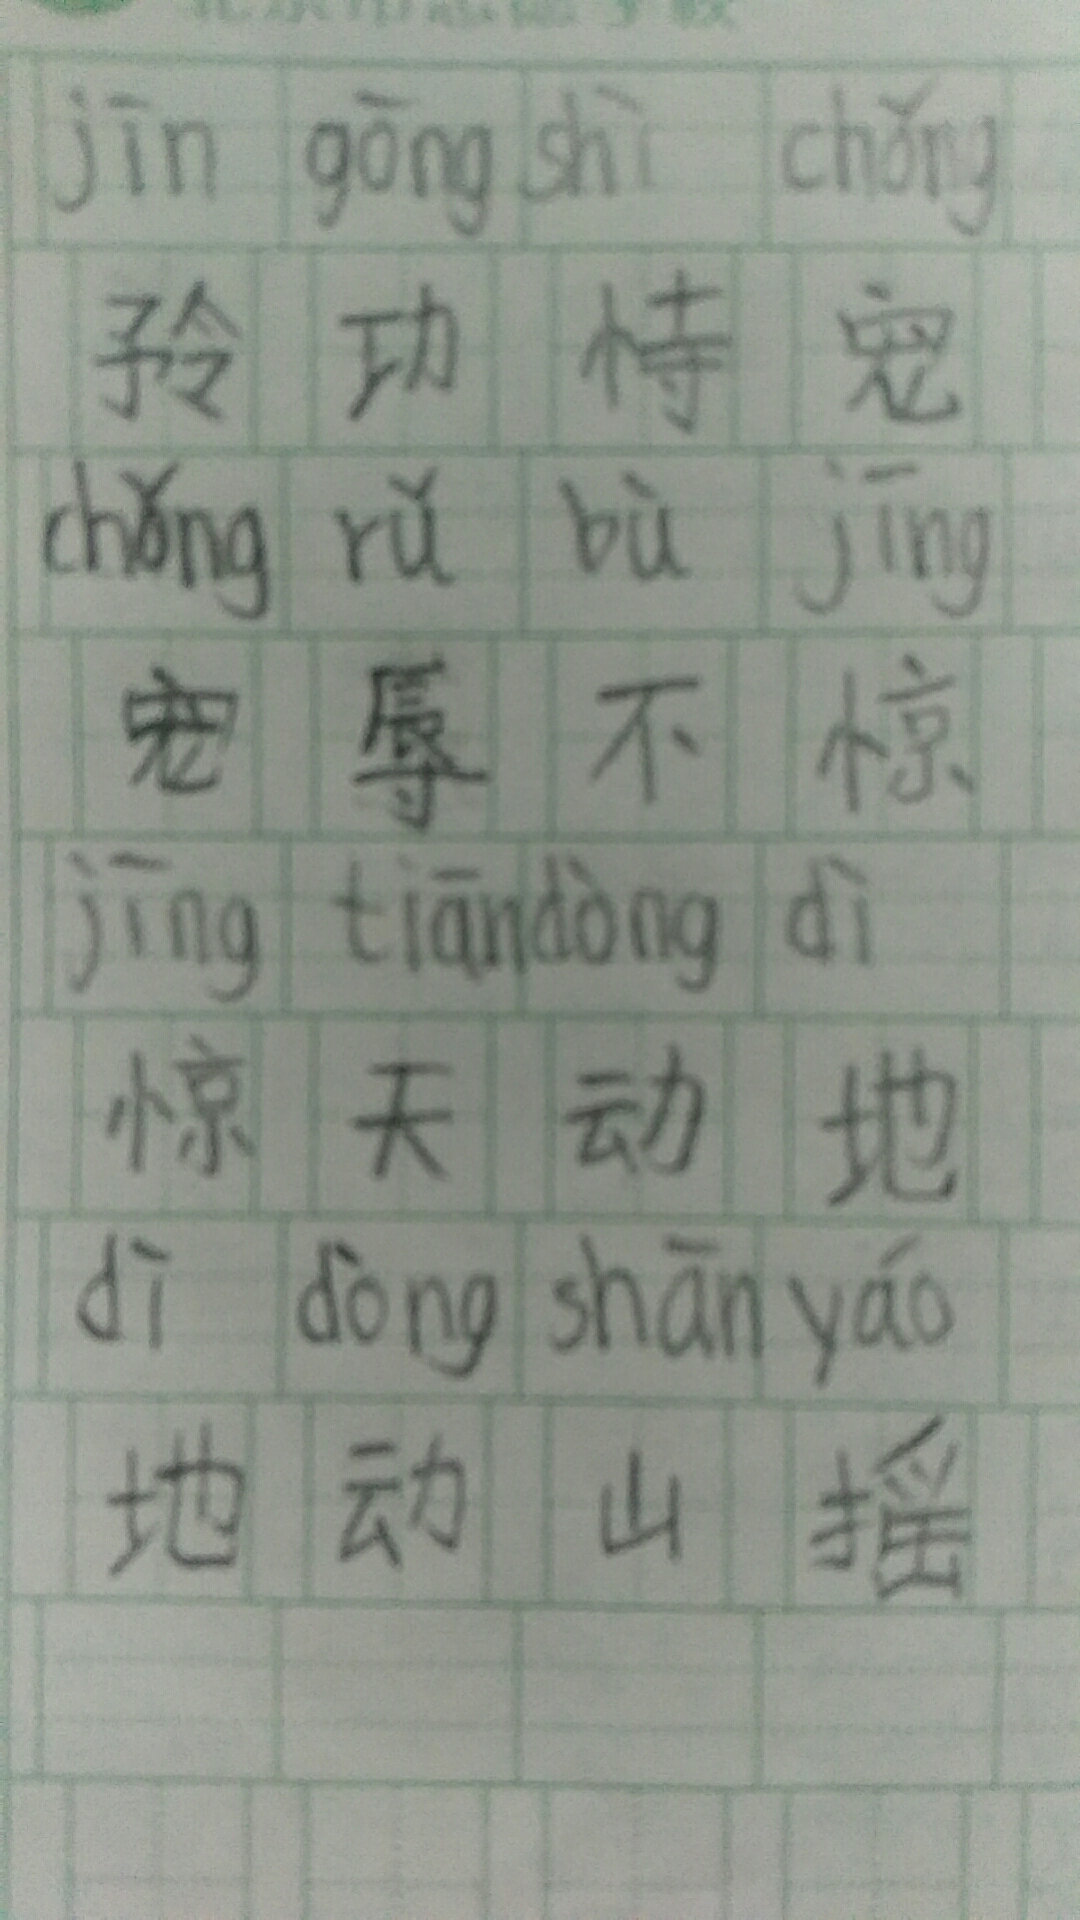 jīn gōng shì chǒng
矜功恃宠
chǒng rǔ bù jīng
宠辱不惊
jīng tiān dòng dì
惊天动地
dì dòng shān yáo
地动山摇